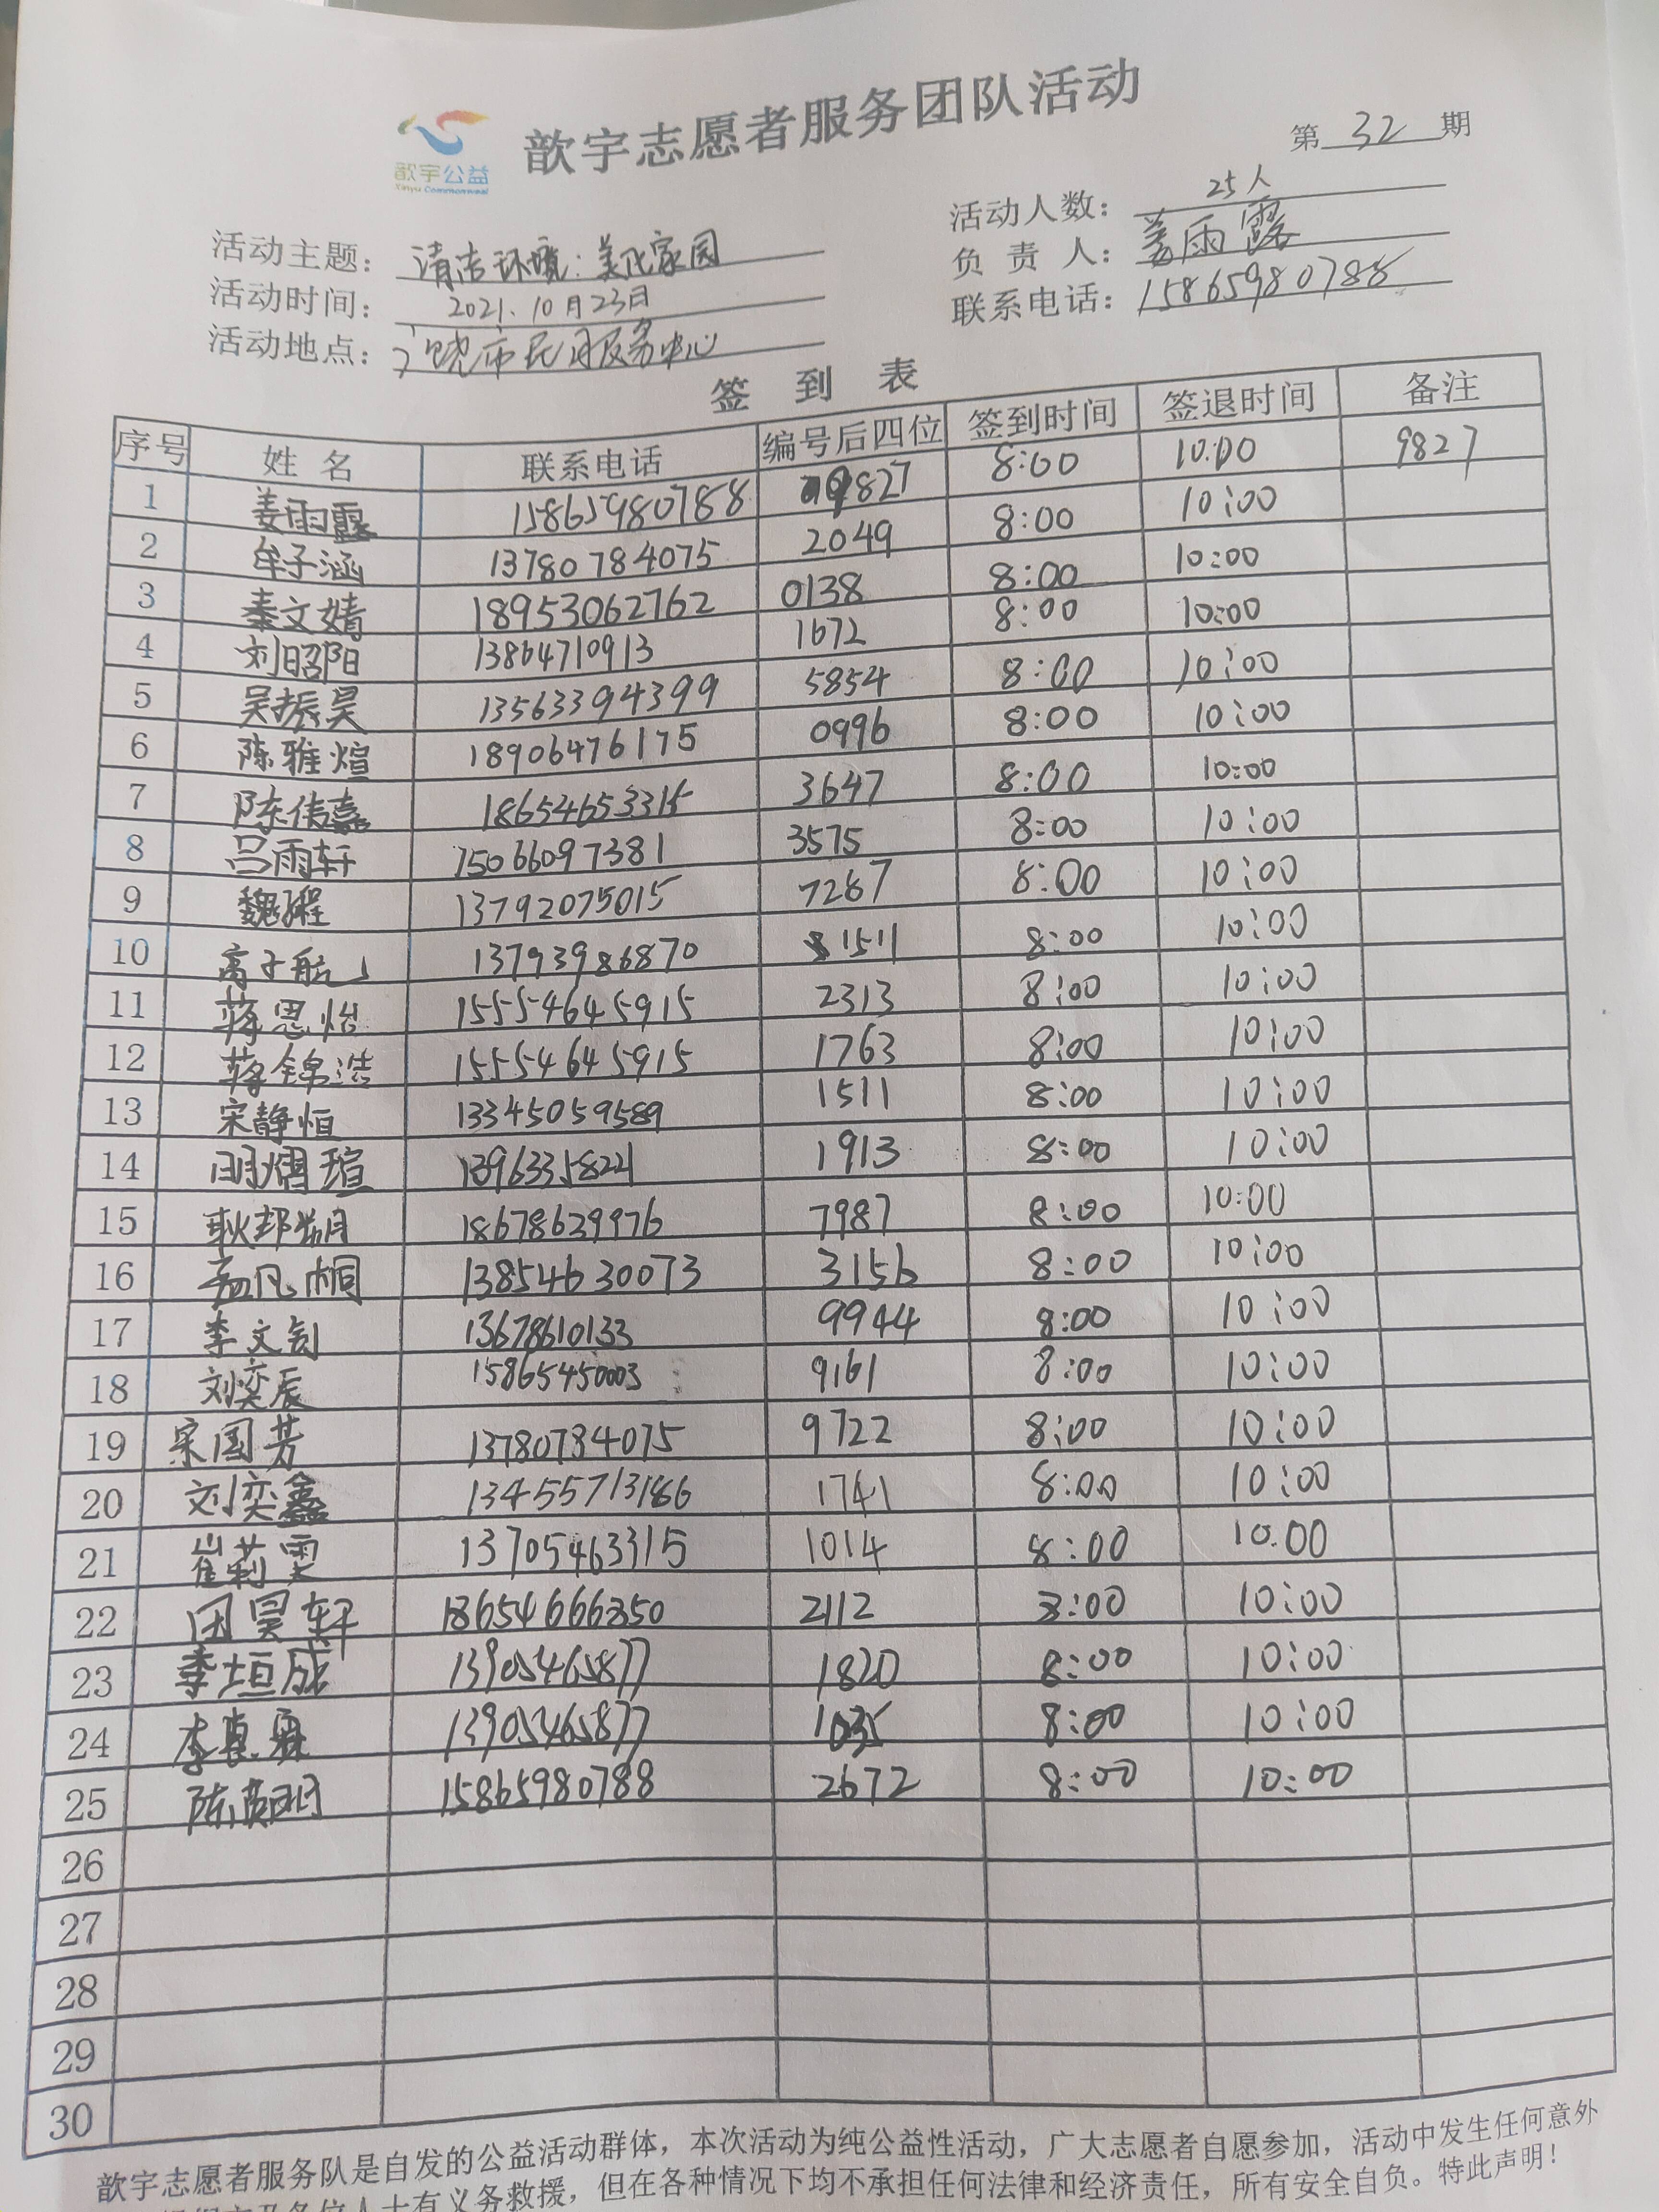 歆宇公益
Xinyu Commonweal
歆宇志愿者服务团队活动
第 32 期
活动主题: 清洁环境:美化家园
活动人数: 25人
活动时间: 2021.10月23日
负责人: 姜雨露
活动地点: 广饶市民服务中心
联系电话: 15865980788
签到表
序号 姓名 联系电话 编号后四位 签到时间 签退时间 备注
1 姜雨露 15865980788 9827 8:00 10:00 9827
2 牟子涵 13780784075 2049 8:00 10:00
3 秦文婧 18953062762 0138 8:00 10:00
4 刘昭阳 13864710913 1672 8:00 10:00
5 吴振昊 13563394399 5854 8:00 10:00
6 陈雅煊 18906476175 0996 8:00 10:00
7 陈伟嘉 18654653315 3647 8:00 10:00
8 吕雨轩 15066097381 3575 8:00 10:00
9 魏 13792075015 7287 8:00 10:00
10 高子航 13793986870 1511 8:00 10:00
11 蒋思怡 15554645915 2313 8:00 10:00
12 蒋锦浩 15554645915 1763 8:00 10:00
13 宋静恒 13345059589 1511 8:00 10:00
14 明熠瑄 13963358221 1913 8:00 10:00
15 耿邦朔 18678629976 7987 8:00 10:00
16 凡桐 13854630073 3156 8:00 10:00
17 李文钊 13678610133 9944 8:00 10:00
18 刘奕辰 15865450003 9161 8:00 10:00
19 宋国芳 13780784075 9722 8:00 10:00
20 刘奕鑫 13455713186 1741 8:00 10:00
21 崔莉雯 13705463315 1014 8:00 10:00
22 田昊轩 18654666350 2112 8:00 10:00
23 李垣成 13905465877 1820 8:00 10:00
24 李 13905465877 1035 8:00 10:00
25 陈 15865980788 2672 8:00 10:00
26
27
28
29
30
歆宇志愿者服务队是自发的公益活动群体，本次活动为纯公益性活动，广大志愿者自愿参加，活动中发生任何意外
人士有义务救援，但在各种情况下均不承担任何法律和经济责任，所有安全自负。特此声明！